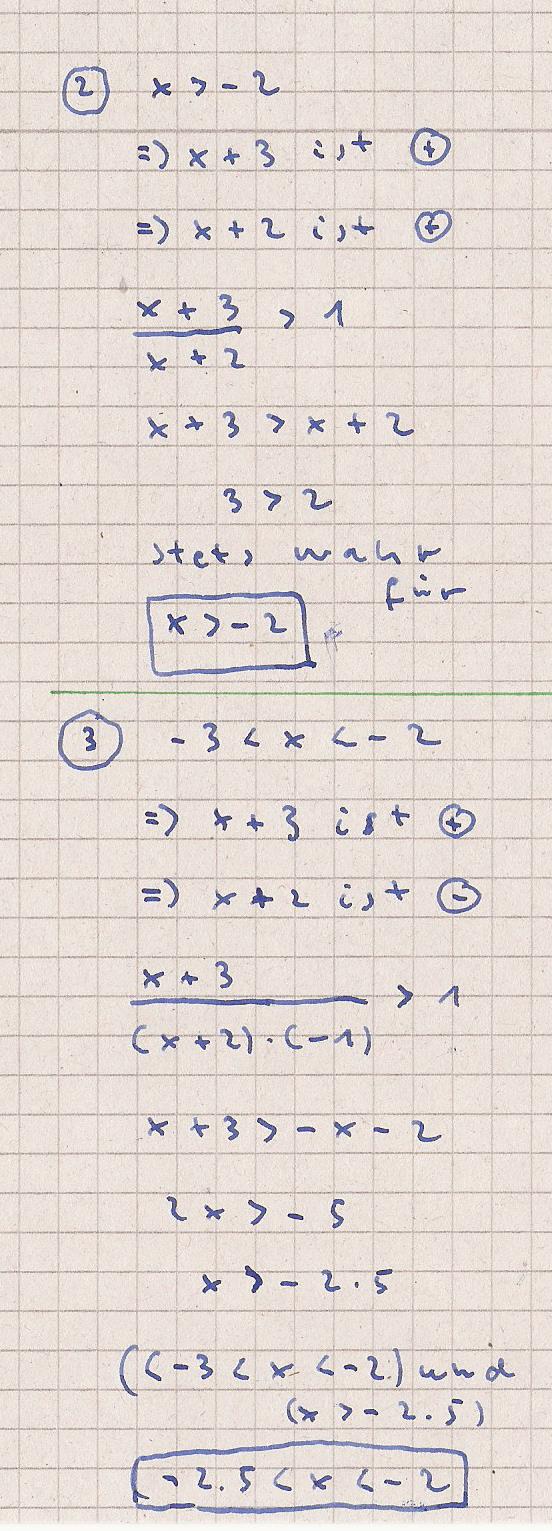 ② x > - 2
=> x + 3 ist ⊕
=> x + 2 ist ⊕
x + 3 > 1
x + 2
x + 3 > x + 2
3 > 2
stets wahr
für
x > - 2
③ - 3 < x < - 2
=> x + 3 ist ⊕
=> x + 2 ist ⊖
x + 3 > 1
(x + 2) · (-1)
x + 3 > - x - 2
2 x > - 5
x > - 2.5
((-3 < x < -2) und
(x > - 2.5)
- 2.5 < x < - 2